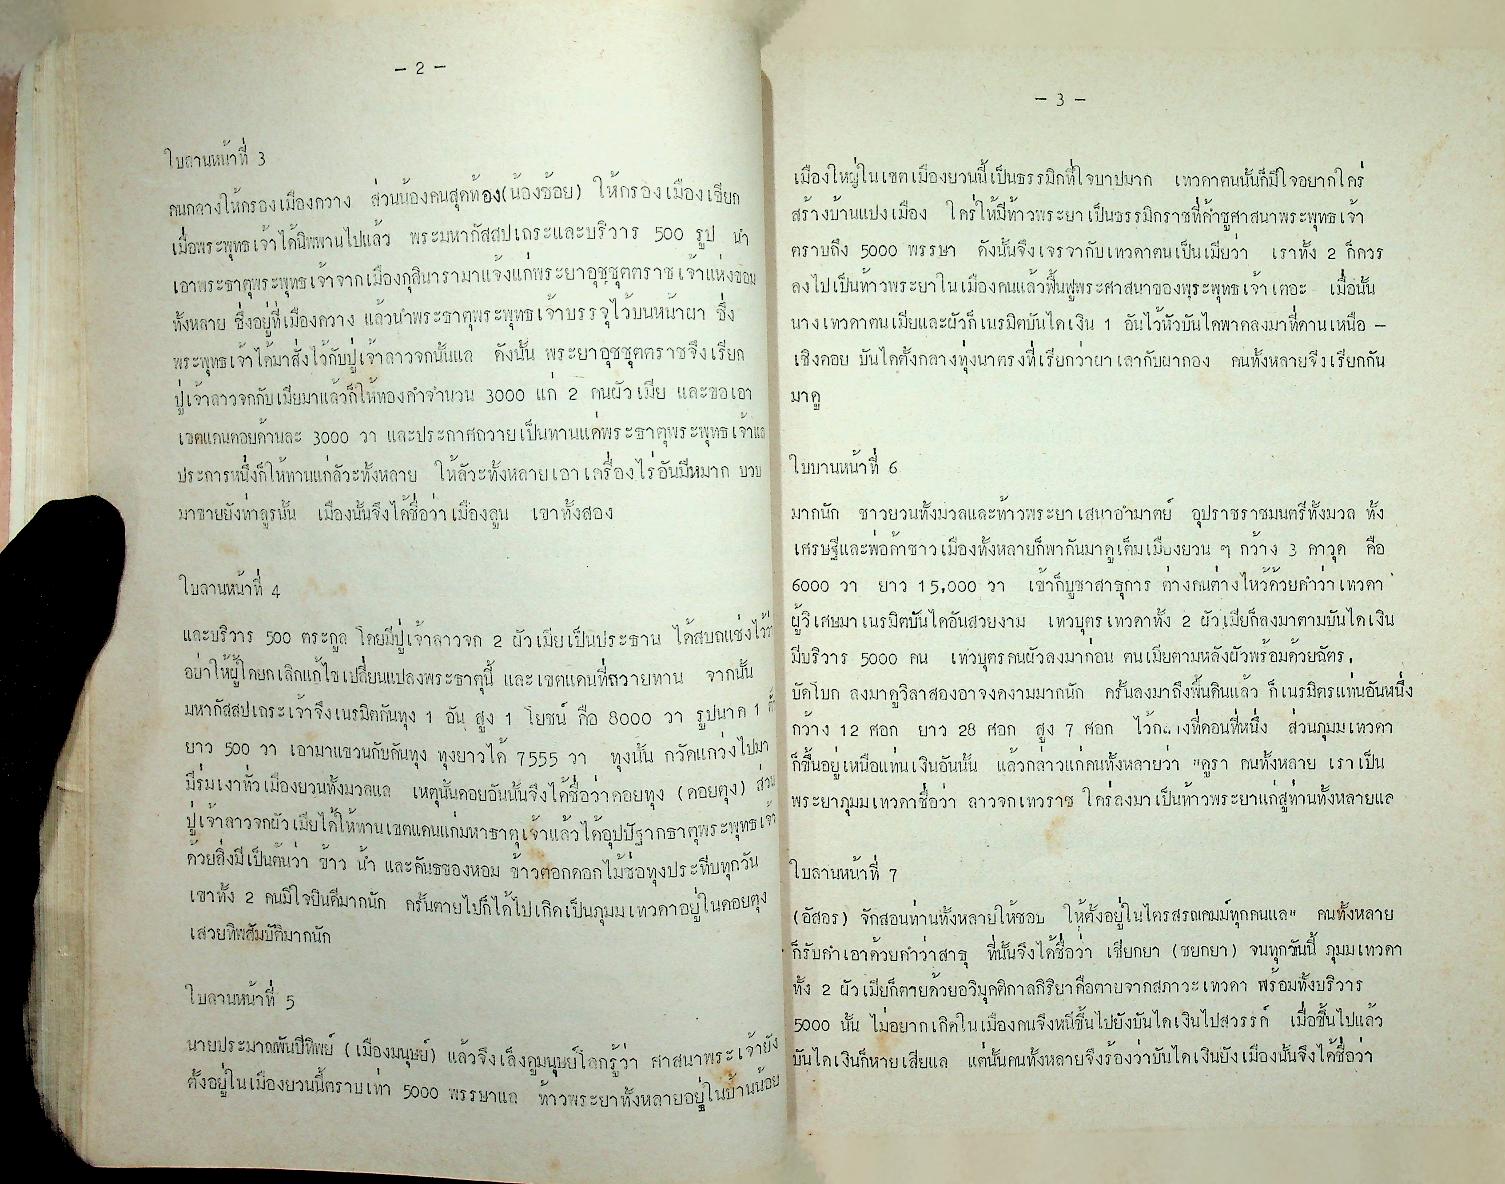 - 2 -
ใบลานหน้าที่ 3
คนกลางให้ครองเมืองกวาง ส่วนน้องคนสุดท้อง(น้องซ้อย) ให้ครองเมืองเชียก
เมื่อพระพุทธเจ้าได้นิพพานไปแล้ว พระมหากัสสปเถระและบริวาร 500 รูป นำ
เอาพระธาตุพระพุทธเจ้าจากเมืองกุสินารามาแจ้งแก่พระยาอุชชุตตราชเจ้าแห่งขอม
ทั้งหลาย ซึ่งอยู่ที่เมืองกวาง แล้วนำพระธาตุพระพุทธเจ้าบรรจุไว้บนหน้าผา ซึ่ง
พระพุทธเจ้าได้มาสั่งไว้กับปู่เจ้าลาวจกนั้นแล ดังนั้น พระยาอุชชุตตราชจึงเรียก
ปู่เจ้าลาวจกกับเมียมาแล้วก็ให้ทองคำจำนวน 3000 แก่ 2 คนผัวเมีย และขอเอา
เขตแดนดอยด้านละ 3000 วา และประกาศถวายเป็นทานแด่พระธาตุพระพุทธเจ้าแล
ประการหนึ่งก็ให้ทานแก่ลัวะทั้งหลาย ให้ลัวะทั้งหลายเอาเครื่องไร่อันมีหมาก บวบ
มาขายยังท่าลูรนั้น เมืองนั้นจึงได้ชื่อว่าเมืองลูน เขาทั้งสอง
ใบลานหน้าที่ 4
และบริวาร 500 ตระกูล โดยมีปู่เจ้าลาวจก 2 ผัวเมียเป็นประธาน ได้สบถแช่งไว้ว่า
อย่าให้ผู้ใดยกเลิกแก้ไขเปลี่ยนแปลงพระธาตุนี้ และเขตแดนที่ถวายทาน จากนั้น
มหากัสสปเถระเจ้าจึงเนรมิตคันทุง 1 อัน สูง 1 โยชน์ คือ 8000 วา รูปนาค 1 ตัว
ยาว 500 วา เอามาแขวนกับคันทุง ทุงยาวได้ 7555 วา ทุงนั้น กวัดแกว่งไปมา
มีร่มเงาทั่วเมืองยวนทั้งมวลแล เหตุนั้นดอยอันนั้นจึงได้ชื่อว่าดอยทุง (ดอยตุง) ส่วน
ปู่เจ้าลาวจกผัวเมียได้ให้ทานเขตแดนแก่มหาธาตุเจ้าแล้วได้อุปปัฐากธาตุพระพุทธเจ้า
ด้วยสิ่งมีเป็นต้นว่า ข้าว น้ำ และคันธของหอม ข้าวตอกดอกไม้ช่อทุงประทีบทุกวัน
เขาทั้ง 2 คนมีใจปินดีมากนัก ครั้นตายไปก็ได้ไปเกิดเป็นภุมมเทวดาอยู่ในดอยตุง
เสวยทิพสัมบัติมากนัก
ใบลานหน้าที่ 5
นายประมาณพันปีทิพย์ (เมืองมนุษย์) แล้วจึงเล็งดูมนุษย์โลกรู้ว่า ศาสนาพระเจ้ายัง
ตั้งอยู่ในเมืองยวนนี้ตราบเท่า 5000 พรรษาแล ท้าวพระยาทั้งหลายอยู่ในบ้านน้อย
- 3 -
เมืองใหญ่ในเขตเมืองยวนนี้เป็นธรรมิกที่ใจบาปมาก เทวดาตนนั้นก็มีใจอยากใคร่
สร้างบ้านแปงเมือง ใคร่ให้มีท้าวพระยาเป็นธรรมิกราชที่ค้ำชูศาสนาพระพุทธเจ้า
ตราบถึง 5000 พรรษา ดังนั้นจึงเจรจากับเทวดาตนเป็นเมียว่า เราทั้ง 2 ก็ควร
ลงไปเป็นท้าวพระยาในเมืองคนแล้วฟื้นฟูพระศาสนาของพระพุทธเจ้าเถอะ เมื่อนั้น
นางเทวดาตนเมียและผัวก็เนรมิตบันไดเงิน 1 อันไว้หัวบันไดพาดลงมาที่ด้านเหนือ -
เชิงดอย บันไดตั้งกลางทุ่งนาตรงที่เรียกว่าผาเลากับผากอง คนทั้งหลายจึงเรียกกัน
มาดู
ใบบานหน้าที่ 6
มากนัก ชาวยวนทั้งมวลและท้าวพระยาเสนาอำมาตย์ อุปราชราชมนตรีทั้งมวล ทั้ง
เศรษฐีและพ่อค้าชาวเมืองทั้งหลายก็พากันมาดูเต็มเมืองยวน ๆ กว้าง 3 คาวุต คือ
6000 วา ยาว 15,000 วา เข้าก็บูชาสาธุการ ต่างคนต่างไหว้ด้วยคำว่าเทวดา
ผู้วิเศษมาเนรมิตบันไดอันสวยงาม เทวบุตรเทวดาทั้ง 2 ผัวเมียก็ลงมาตามบันไดเงิน
มีบริวาร 5000 ตน เทวบุตรตนผัวลงมาก่อน ตนเมียตามหลังผัวพร้อมด้วยฉัตร,
บัดโบก ลงมาดูวิลาสองอาจงดงามมากนัก ครั้นลงมาถึงพื้นดินแล้ว ก็เนรมิตรแท่นอันหนึ่ง
กว้าง 12 ศอก ยาว 28 ศอก สูง 7 ศอก ไว้กลางที่ดอนที่หนึ่ง ส่วนภุมมเทวดา
ก็ขึ้นอยู่เหนือแท่นเงินอันนั้น แล้วกล่าวแก่คนทั้งหลายว่า "ดูรา คนทั้งหลาย เราเป็น
พระยาภุมมเทวดาชื่อว่า ลาวจกเทวราช ใคร่ลงมาเป็นท้าวพระยาแก่สู่ท่านทั้งหลายแล
ใบลานหน้าที่ 7
(อัสอร) จักสอนท่านทั้งหลายให้ชอบ ให้ตั้งอยู่ในไตรสรณคมม์ทุกคนแล" คนทั้งหลาย
ก็รับคำเอาด้วยคำว่าสาธุ ที่นั้นจึงได้ชื่อว่า เสียกยา (ชยกยา) จนทุกวันนี้ ภุมมเทวดา
ทั้ง 2 ผัวเมียก็ตายด้วยอวิมุคติกาลกิริยาคือตายจากสภาวะเทวดา พร้อมทั้งบริวาร
5000 นั้น ไม่อยากเกิดในเมืองคนจึงหนีขึ้นไปยังบันไดเงินไปสวรรค์ เมื่อขึ้นไปแล้ว
บันไดเงินก็หายเสียแล แต่นั้นคนทั้งหลายจึงร้องว่าบันไดเงินยังเมืองนั้นจึงได้ชื่อว่า